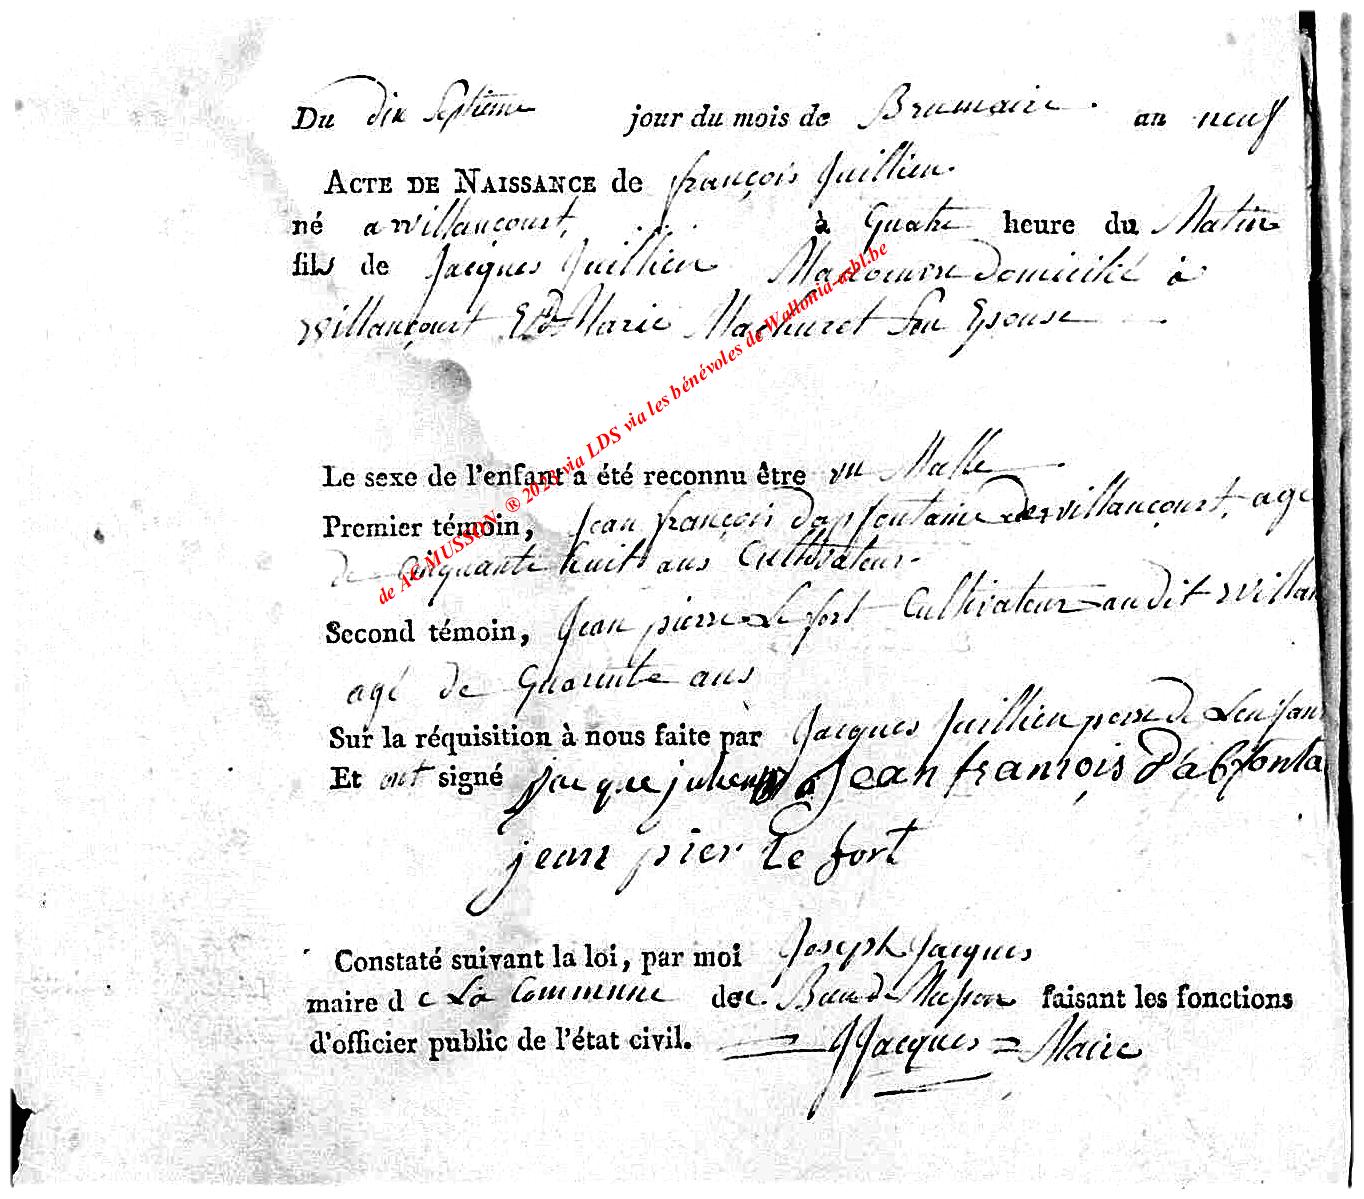 Du dix Septième jour du mois de Brumaire an neuf
ACTE DE NAISSANCE de françois Juillien.
né a willancourt, à Quatre heure du Matin
fils de Jacques Juillien Maneuvre Domicilié à
willancourt Et De Marie Machuret Son Epouse
Le sexe de l'enfant a été reconnu être un Malle
Premier témoin, Jean françois Dapfontaine de willancourt, agé
de Cinquante huit ans Cultivateur.
Second témoin, Jean pierre Le fort Cultivateur au dit willan
agé de Quarente ans
Sur la réquisition à nous faite par Jacques Juillien perre de Lenfan
Et ont signé jacque julien Jean françois dabfonta
jean pier le fort
Constaté suivant la loi, par moi Joseph Jacques
maire de La Commune de Ban de Musson faisant les fonctions
d'officier public de l'état civil. = JJacques = Maire
de AC MUSSON ® 2023 via LDS via les bénévoles de Wallonia-asbl.be